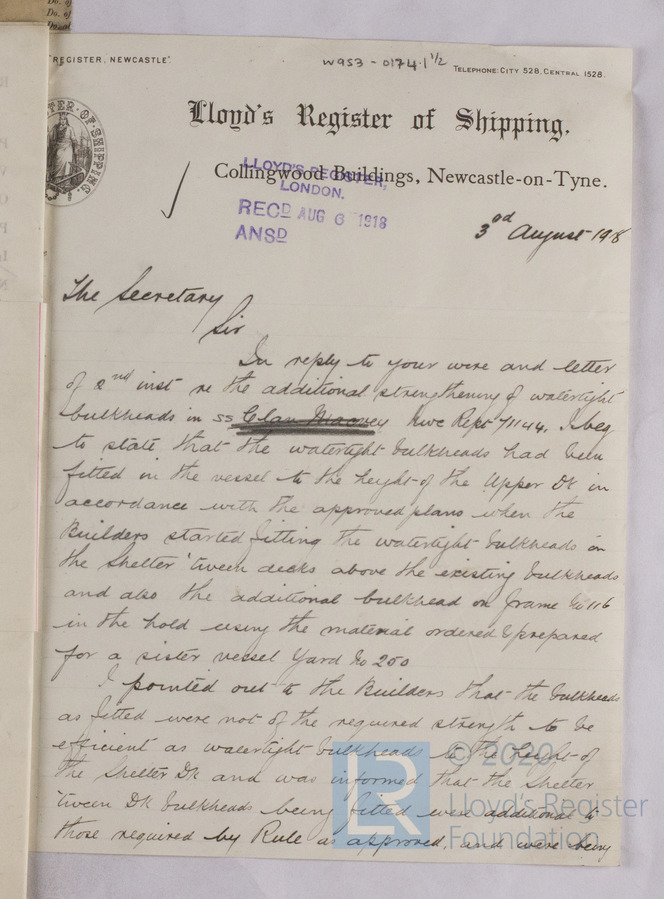 Do. of
Do. of
REGISTER, NEWCASTLE".
W953-0174.1 1/2
TELEPHONE: CITY 528, CENTRAL 1528.
TER·OF·SHIPPING
Lloyd's Register of Shipping,
Collingwood Buildings, Newcastle-on-Tyne.
LLOYD'S REGISTER,
LONDON.
RECD AUG 6 1918
ANSD
3rd August 1918
The Secretary
Sir
In reply to your wire and letter
of 2nd inst re the additional strengthening of watertight
bulkheads in ss Clan Macvey Nwc Rept 71144. I beg
to state that the watertight bulkheads had been
fitted in the vessel to the height of the Upper Dk in
accordance with the approved plans when the
Builders started fitting the watertight bulkheads in
the Shelter 'tween decks above the existing bulkheads
and also the additional bulkhead on frame No 116
in the hold using the material ordered & prepared
for a sister vessel Yard No 250
I pointed out to the Builders that the bulkheads
as fitted were not of the required strength to be
efficient as watertight bulkheads to the height of
the Shelter Dk and was informed that the Shelter
'tween Dk bulkheads being fitted were additional to
those required by Rule as approved, and were being
LR
© 2020
Lloyd's Register
Foundation